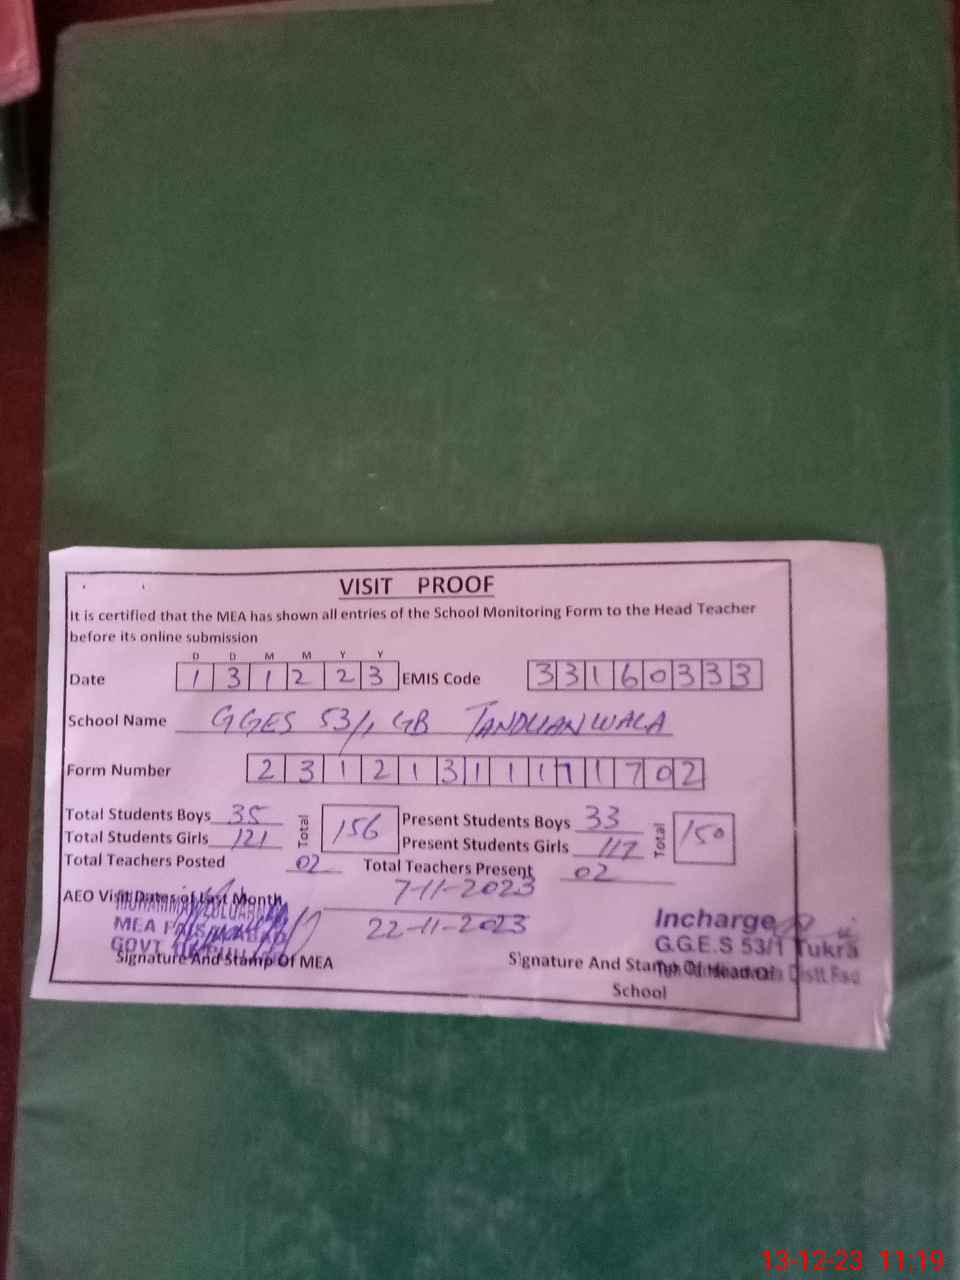 VISIT PROOF
It is certified that the MEA has shown all entries of the School Monitoring Form to the Head Teacher
before its online submission
D D M M Y Y
Date 1 3 1 2 2 3 EMIS Code 3 3 1 6 0 3 3 3
School Name GGES 53/1 GB TANDLIANWALA
Form Number 2 3 1 2 1 3 1 1 1 1 1 7 0 2
Total Students Boys 35 Total 156 Present Students Boys 33 Total 150
Total Students Girls 121 Present Students Girls 117
Total Teachers Posted 02 Total Teachers Present 02
AEO Visit Dates of Last Month 7-11-2023
22-11-2023
MEA
GOVT
Incharge
G.G.E.S 53/1 Tukra
Signature And Stamp Of MEA Signature And Stamp Of Head Of
School
13-12-23 11:19